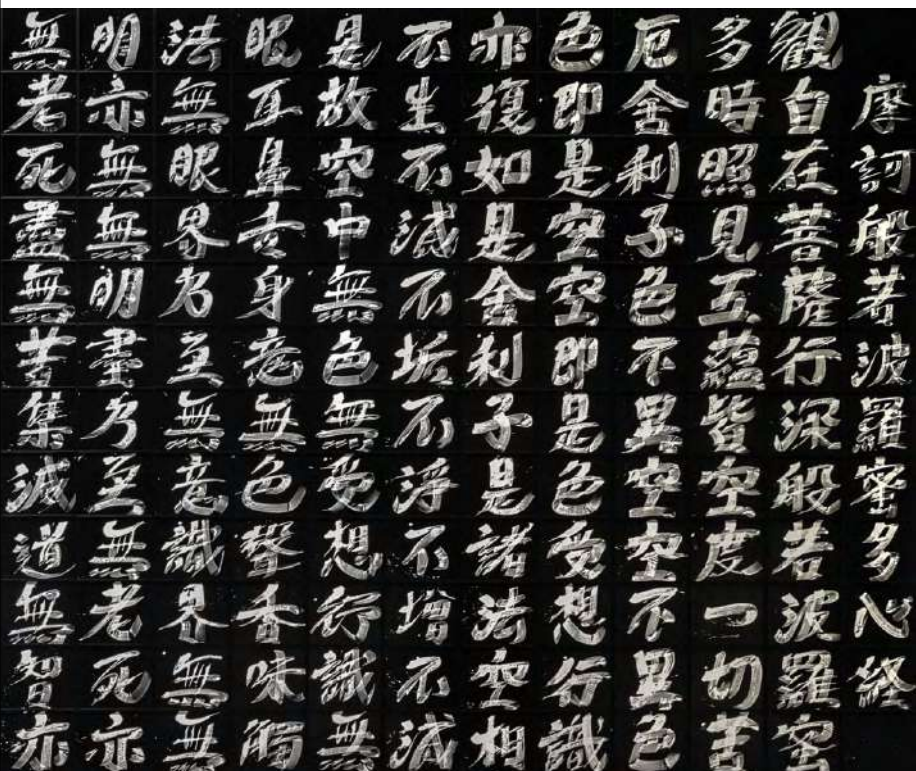 摩訶般若波羅蜜多心経
観自在菩薩行深般若波羅蜜
多時照見五蘊皆空度一切苦
厄舎利子色不異空空不異色
色即是空空即是色受想行識
亦復如是舎利子是諸法空相
不生不滅不垢不淨不增不減
是故空中無色無受想行識無
眼耳鼻舌身意無色聲香味觸
法無眼界乃至無意識界無無
明亦無無明盡乃至無老死亦
無老死盡無苦集滅道無智亦